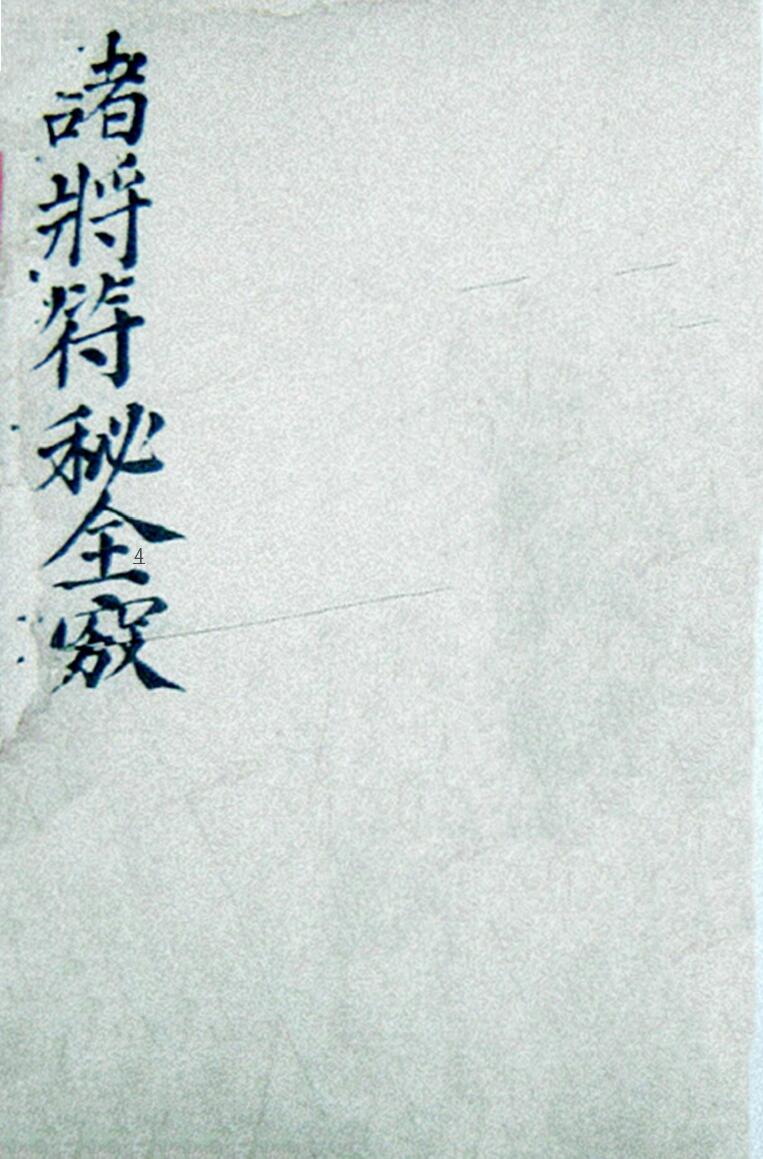 諸將符秘全竅
4